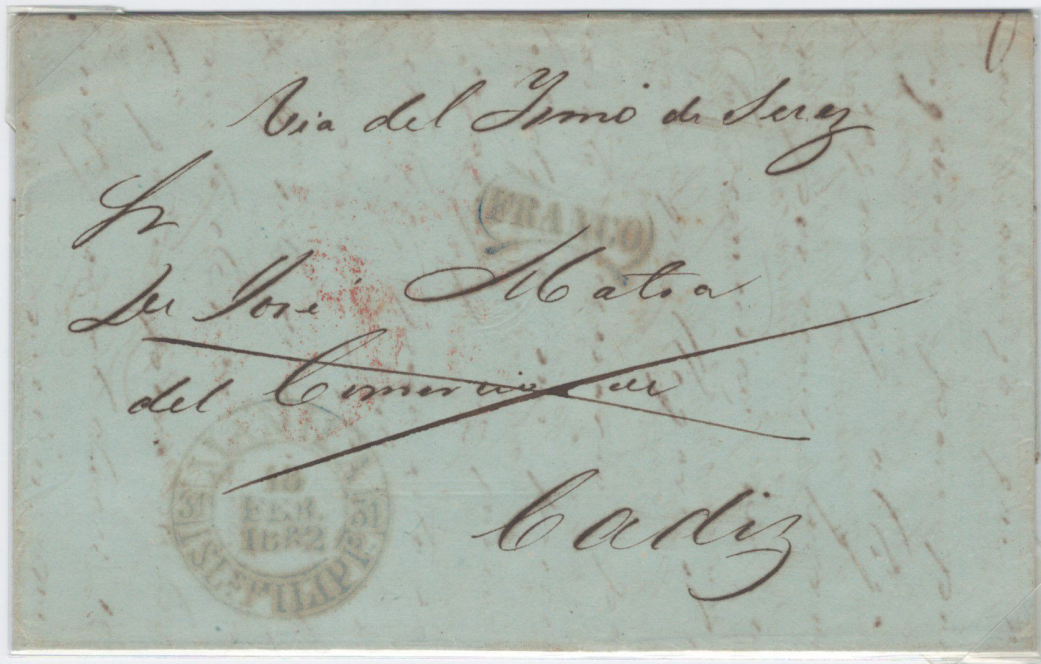 Via del Ysmo de Suez
FRANCO
Sr
Dn José Matia
del Comercio de
Cadiz
FEB.
1862
31 31
ISLS FILIPS